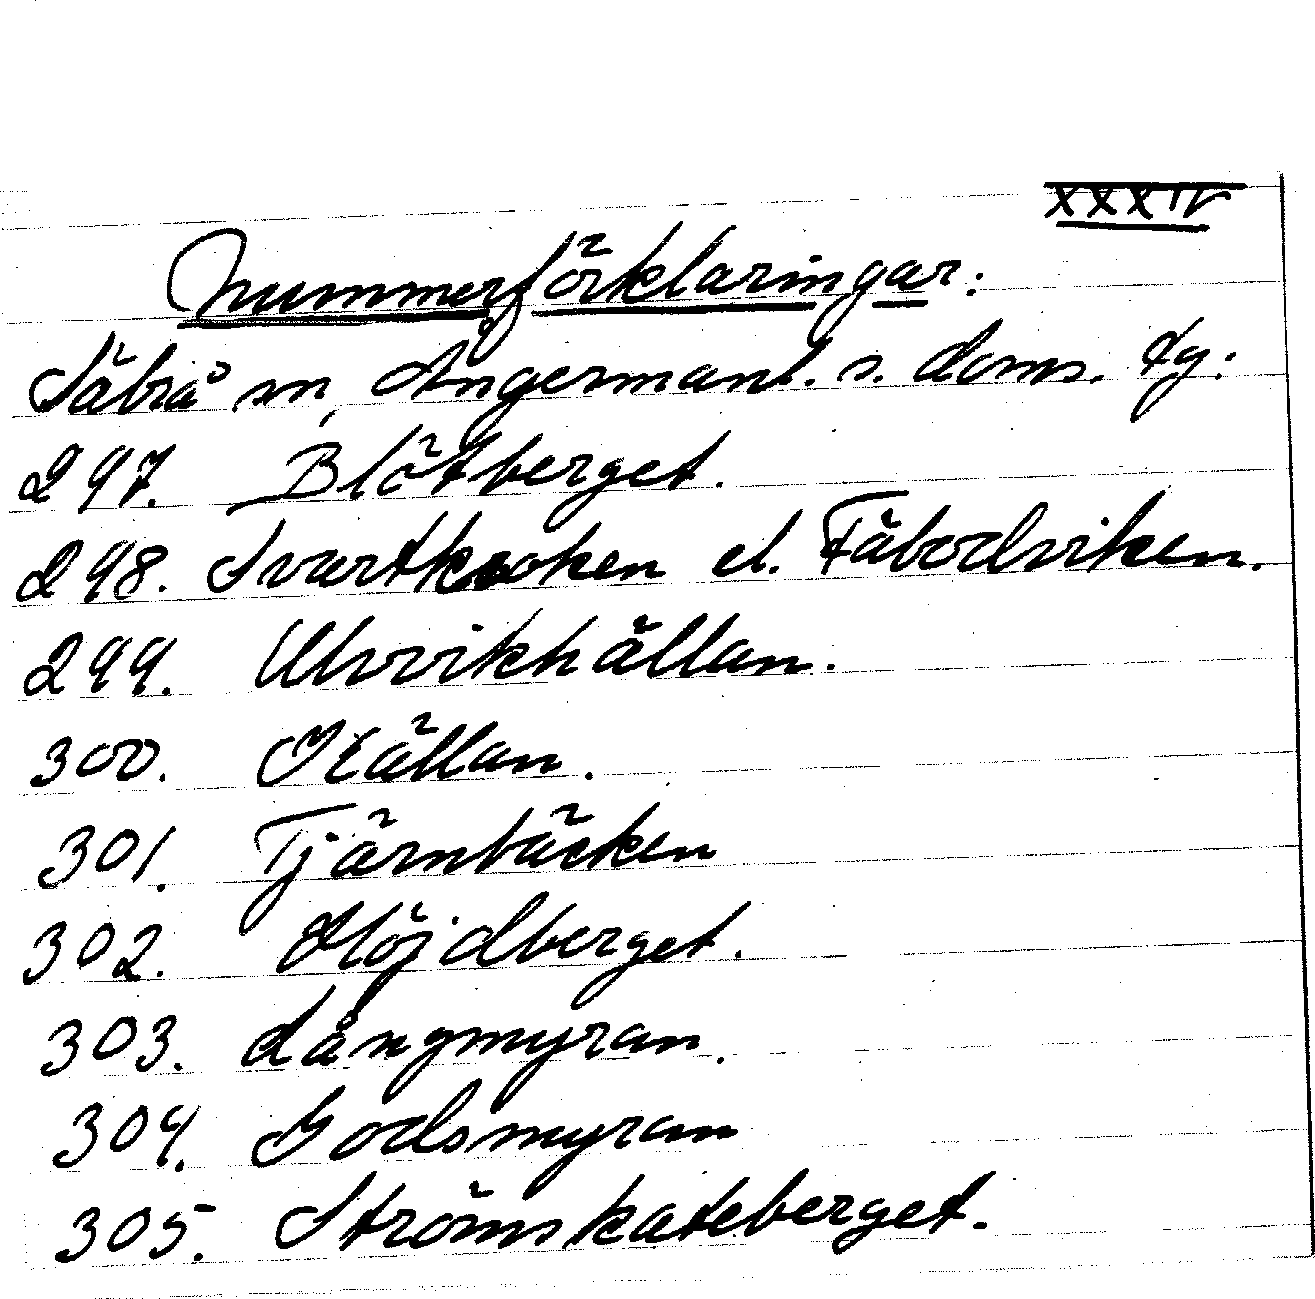 XXXIV
Nummerförklaringar:
Säbrå sn, Ångermanl. s. doms. tg:
297. Blötberget.
298. Svartkroken el. Fäbodviken.
299. Ulvvikhällan.
300. Källan.
301. Tjärnbäcken
302. Höjdberget.
303. Långmyran.
304. Godsmyran
305. Strömskateberget.